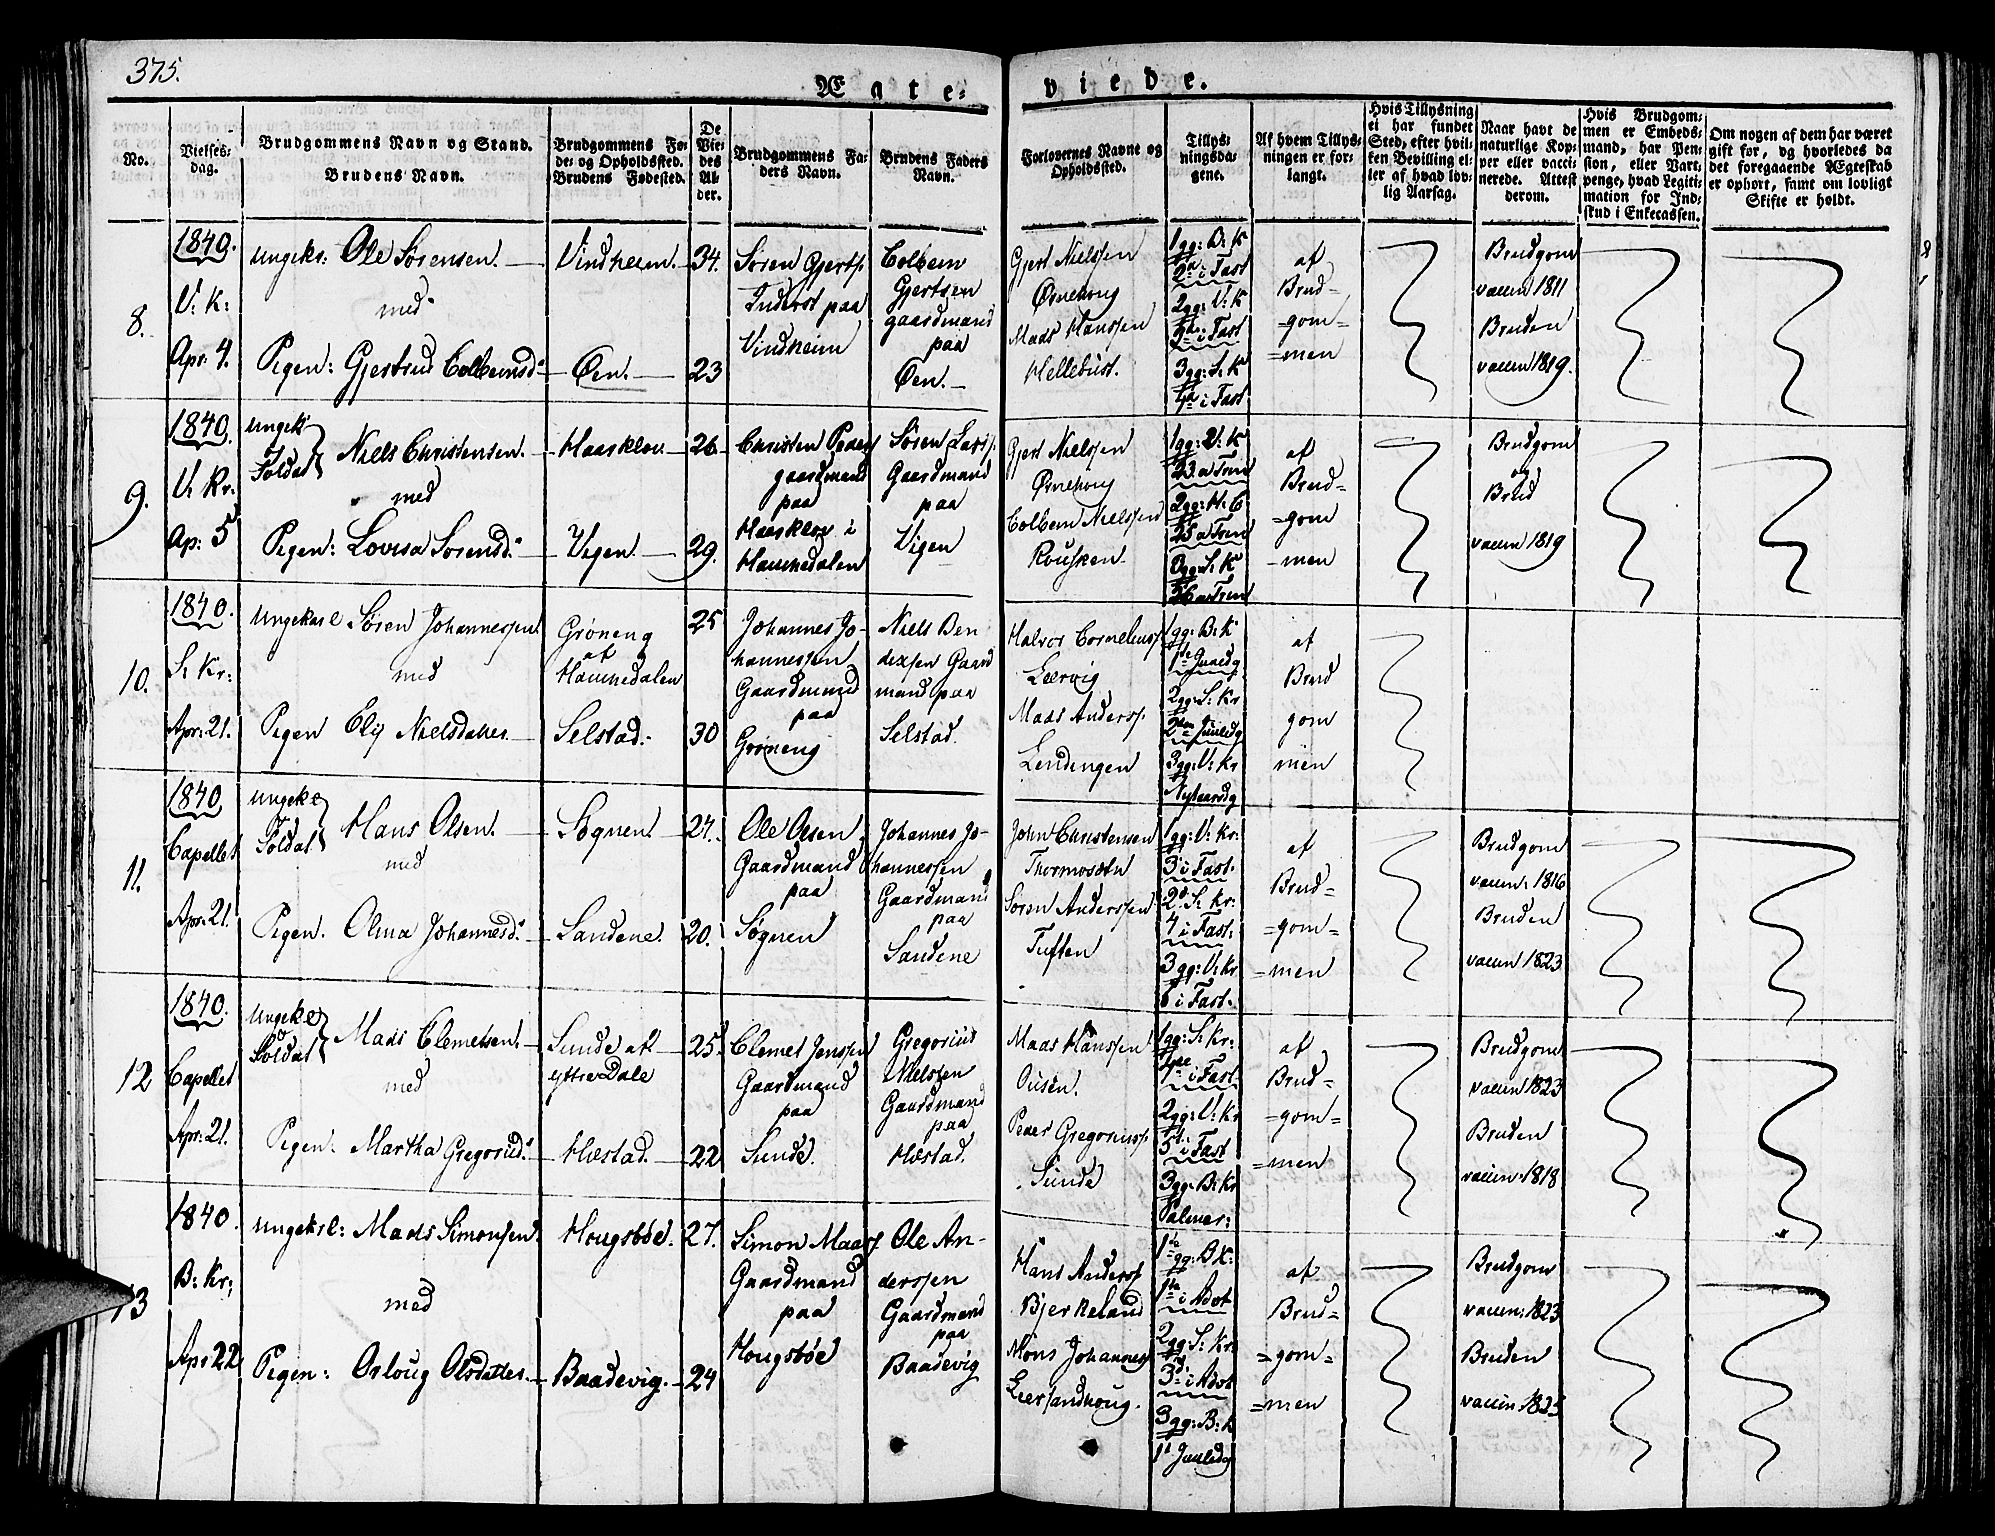 375.
Ægte-
viede.
No.
Vielses-
dag.
Brudgommens Navn og Stand.
Brudens Navn.
Brudgommens Fø-
de- og Opholdssted.
Brudens Fødested.
De
Vie-
des
Al-
der.
Brudgommens Fa-
ders Navn.
Brudens Faders
Navn.
Forlovernes Navne og
Opholdssted.
Tillys-
ningsda-
gene.
Af hvem Tillys-
ningen er for-
langt.
Hvis Tillysning
ei har fundet
Sted, efter hvil-
ken Bevilling el-
ler af hvad lov-
lig Aarsag.
Naar havt de
naturlige Kop-
per eller vacci-
nerede. Attest
derom.
Hvis Brudgom-
men er Embeds-
mand, har Pen-
sion, eller Vart-
penge, hvad Legiti-
mation for Ind-
skud i Enkecassen.
Om nogen af dem har været
gift før, og hvorledes da
det foregaaende Ægteskab
er ophørt, samt om lovligt
Skifte er holdt.
8.
1840.
V: K:
Apr: 4.
ungkr: Ole Sørensen.
med
Pigen: Gjertrud Colbeinsd:
Vindheim.
Øen.
34.
23
Søren Gjerts:
Inderst paa
Vindheim
Colbein
Gjertsen
gaardmand
paa
Øen.
Gjert Nielssen
Ørnehoug
Mads Hanssen
Hellebust.
1gg: B: K
2d i Fast
2gg: V: K
3die i Fast
3gg: S: K
4de i Fast
af
Brud-
-gom=
=men
Brudgom
vaccin 1811
Bruden
vaccin 1819.
9.
1840.
V: Kr:
Ap: 5
ungk
og
Soldat
Niels Christensen.
med
Pigen: Lovisa Sørensd:
Haarklou
Vigen.
26
29.
Christen Peders
gaardmand
paa
Haarklou i
Haukedalen
Søren Lars:
Gaardmand
paa
Vigen
Gjert Nielssen
Ørnehoug
Colbein Nielssen
Rousken
1gg: V: K
23 a Trin
2gg: H: C
25 a Trin
3gg: S: K
26 a Trin
af
Brud=
=gom
-men
Brudgom
og
Brud
vaccin 1819
10.
1840.
S: Kr:
Apr: 21.
ungekarl Søren Johannessen
med
Pigen Elij Nielsdatter
Grøneng
af
Haukedalen
Selstad.
25
30
Johannes Jo-
hannessen
Gaardmand
paa
Grøneng
Niels Ben
dixsen Gaard
mand paa
Selstad.
Halvor Corneliuss
Leervig
Mads Anderss:
Lendingen
1gg: B: K
1ste Juuledg
2gg: S: Kr
2den Juuledg
3gg: V: Kr
Nytaarsdg
af
Brud
gom
men
11.
1840,
Capellet
Apr: 21.
ungke
og
Soldat
Hans Olsen.
med
Pigen. Olina Johannesd:
Sognen.
Sandene.
24.
20.
Ole Olsen
Gaardmand
paa
Søgnen
Johannes Jo-
hannessen
Gaardmand
paa
Sandene
John Christensen
Søren Anderssen
Tuften
1gg: V: Kr:
3 i Fast.
2d: S: Kr:
4 i Fast.
3gg: V: Kr
6 i Fast.
af
Brud=
=gom=
=men
Brudgom
vaccin: 1816
Bruden
vaccin 1823
12
1840.
Capellet
Apr: 21.
ungke
og
Soldat
Mads Clemetsen.
med
Pigen: Martha Gregoriid:
Sunde af
yttre Dale
Hæstad.
25.
22
Clemet Jenssen
Gaardmand
paa
Sunde.
Gregorius
Nielssen
Gaardmand
paa
Hæstad.
Mads Hanssen
Ousen.
Peder Gregoriuss:
Sunde
1gg: S: Kr:
i Fast.
2gg: V: Kr
5te i Fast
3gg: B: Kr
Palmar:
af
Brud=
=gom=
=men
Brudgom
vaccin 1823
Bruden
vaccin: 1818
13
1840.
B: Kr:
Apr 22
ungekrl: Mads Simonssen.
med
Pigen: Orloug Olsdatter.
Hougsbøe.
Baadevig.
27.
24
Simon Madss
Gaardmand
paa
Hougsbøe
Ole An-
derssen
Gaardmand
paa
Baadevig
Hans Anderss
Bjerkeland
Mons Johanness
Leersandhoug.
1ste gg: B K:
1ste i Advt
2gg: S: Kr:
3d i Advt
3gg: B: K
1st Juuledg
af
Brud-
=gom=
=men
Brudgom
vaccin: 1823
Bruden
vaccin: 1825